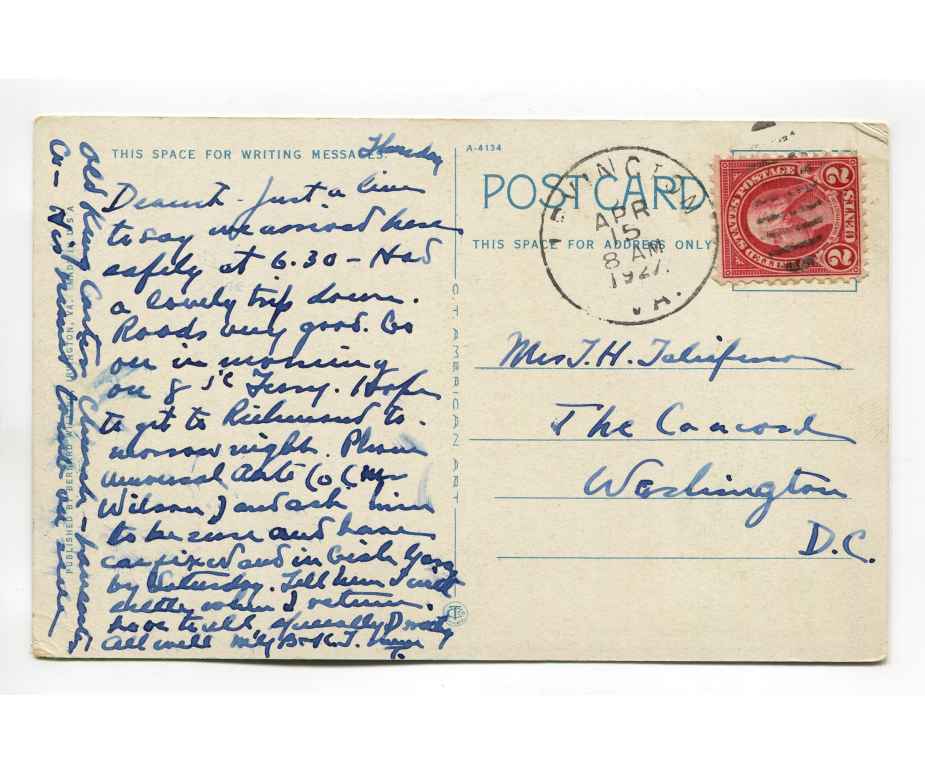 THIS SPACE FOR WRITING MESSAGES.
Thursday
Dearest - Just a line
to say we arrived here
safely at 6.30 - Had
a lovely trip down.
Roads very good. Go
on in morning
on 8 Ferry. Hope
to get to Richmond to-
morrow night. Phone
Universal Auto Co (Mr
Wilson) and ask him
to be sure and have
car fixed and in
by Saturday. Tell him I will
settle when I return.
Love to all especially Dorothy
All well
Old King Carter Church - famous
PUBLISHED BY
VA.
C.T. AMERICAN ART
A-4134
POST CARD
THIS SPACE FOR ADDRESS ONLY
IRVINGTON
APR
15
8 AM
1927
VA.
UNITED STATES POSTAGE
2 CENTS 2
Mrs T. H. Taliaferro
The Concord
Washington
D.C.